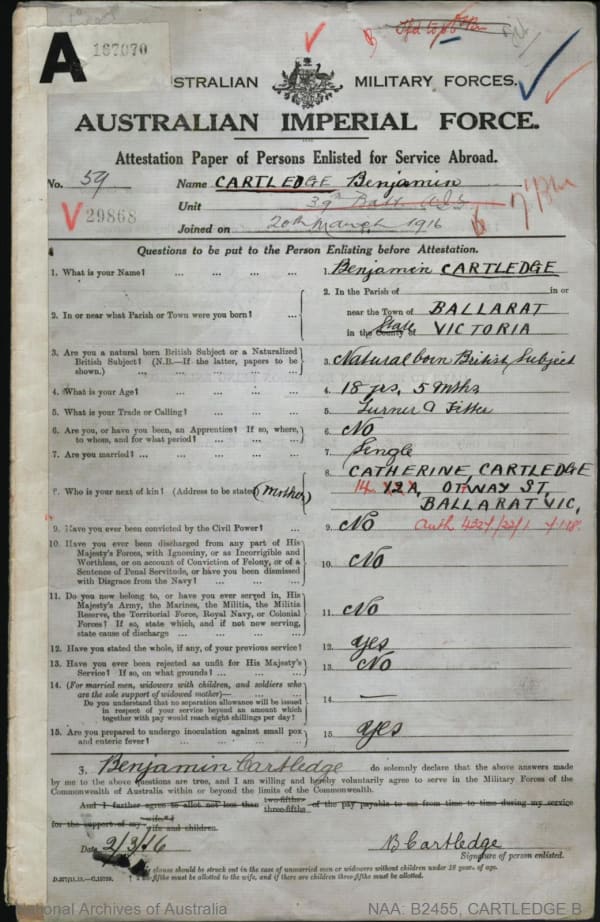 A 167070
AUSTRALIAN MILITARY FORCES.
AUSTRALIAN IMPERIAL FORCE.
Attestation Paper of Persons Enlisted for Service Abroad.
No. 59 Name CARTLEDGE Benjamin
Unit 39th Batt AIF
V 29868
Joined on 20th March 1916
Questions to be put to the Person Enlisting before Attestation.
1. What is your Name? ... ... ... ... 1. Benjamin CARTLEDGE
2. In or near what Parish or Town were you born? ... 2. In the Parish of in or
near the Town of BALLARAT
in the County of State VICTORIA
3. Are you a natural born British Subject or a Naturalized
British Subject? (N.B.—If the latter, papers to be
shown.) ... ... ... ... ... 3. Natural born British Subject
4. What is your Age? ... ... ... ... 4. 18 yrs, 5 mths
5. What is your Trade or Calling? ... ... ... 5. Turner & Fitter
6. Are you, or have you been, an Apprentice? If so, where,
to whom, and for what period? ... ... ... 6. No
7. Are you married? ... ... ... ... ... 7. Single
8. Who is your next of kin? (Address to be stated) (Mother) 8. CATHERINE, CARTLEDGE
14 12A, OTWAY ST,
BALLARAT VIC,
9. Have you ever been convicted by the Civil Power? ... 9. No Auth 4224/22/1
10. Have you ever been discharged from any part of His
Majesty's Forces, with Ignominy, or as Incorrigible and
Worthless, or on account of Conviction of Felony, or of a
Sentence of Penal Servitude, or have you been dismissed
with Disgrace from the Navy? ... ... ... 10. No
11. Do you now belong to, or have you ever served in, His
Majesty's Army, the Marines, the Militia, the Militia
Reserve, the Territorial Force, Royal Navy, or Colonial
Forces? If so, state which, and if not now serving,
state cause of discharge ... ... ... ... 11. No
12. Have you stated the whole, if any, of your previous service? 12. yes
13. Have you ever been rejected as unfit for His Majesty's
Service? If so, on what grounds? ... ... ... 13. No
14. (For married men, widowers with children, and soldiers who
are the sole support of widowed mother)— ... ...
Do you understand that no separation allowance will be issued
in respect of your service beyond an amount which
together with pay would reach eight shillings per day? 14. —
15. Are you prepared to undergo inoculation against small pox
and enteric fever? ... ... ... ... 15. yes
3. Benjamin Cartledge do solemnly declare that the above answers made
by me to the above questions are true, and I am willing and hereby voluntarily agree to serve in the Military Forces of the
Commonwealth of Australia within or beyond the limits of the Commonwealth.
And I further agree to allot not less than two-fifths three-fifths of the pay payable to me from time to time during my service
for the support of my wife wife and children.
Date 2/3/16 B Cartledge
Signature of person enlisted.
clause should be struck out in the case of unmarried men or widowers without children under 18 years of age.
-fifths must be allotted to the wife, and if there are children three-fifths must be allotted.
National Archives of Australia NAA: B2455, CARTLEDGE B